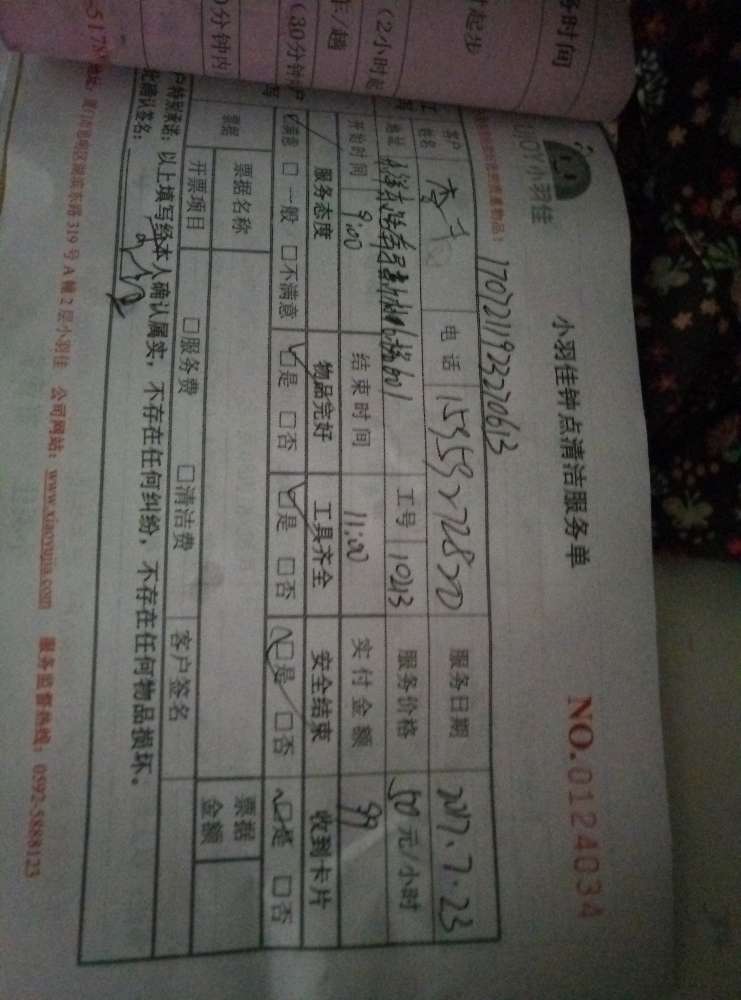 务时间
时起步
(2小时起
(30分钟
0分钟内
小羽佳
小羽佳钟点清洁服务单
NO.0124034
1707211923220613
客户姓名
电话
服务日期 2017.7.23
地址
601
工号 10213
服务价格 50元/小时
开始时间 9:00
结束时间 11:00
实付金额 99
服务态度 物品完好 工具齐全 安全结束 收到卡片
满意 □一般 □不满意 □是 □否 □是 □否 □是 □否 □是 □否
票据 票据名称 票据金额
开票项目 □服务费 □清洁费 客户签名
户特别承诺：以上填写经本人确认属实，不存在任何纠纷，不存在任何物品损坏。
此确认签名：
地址：厦门市思明区湖滨东路319号A幢2层小羽佳 公司网站：www.xiaoyujia.com 服务监督热线：0592-5888123